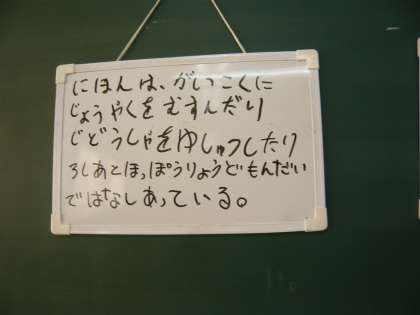 にほんは、がいこくに
じょうやくをむすんだり
じどうしゃをゆしゅつしたり
ろしあとほっぽうりょうどもんだい
ではなしあっている。